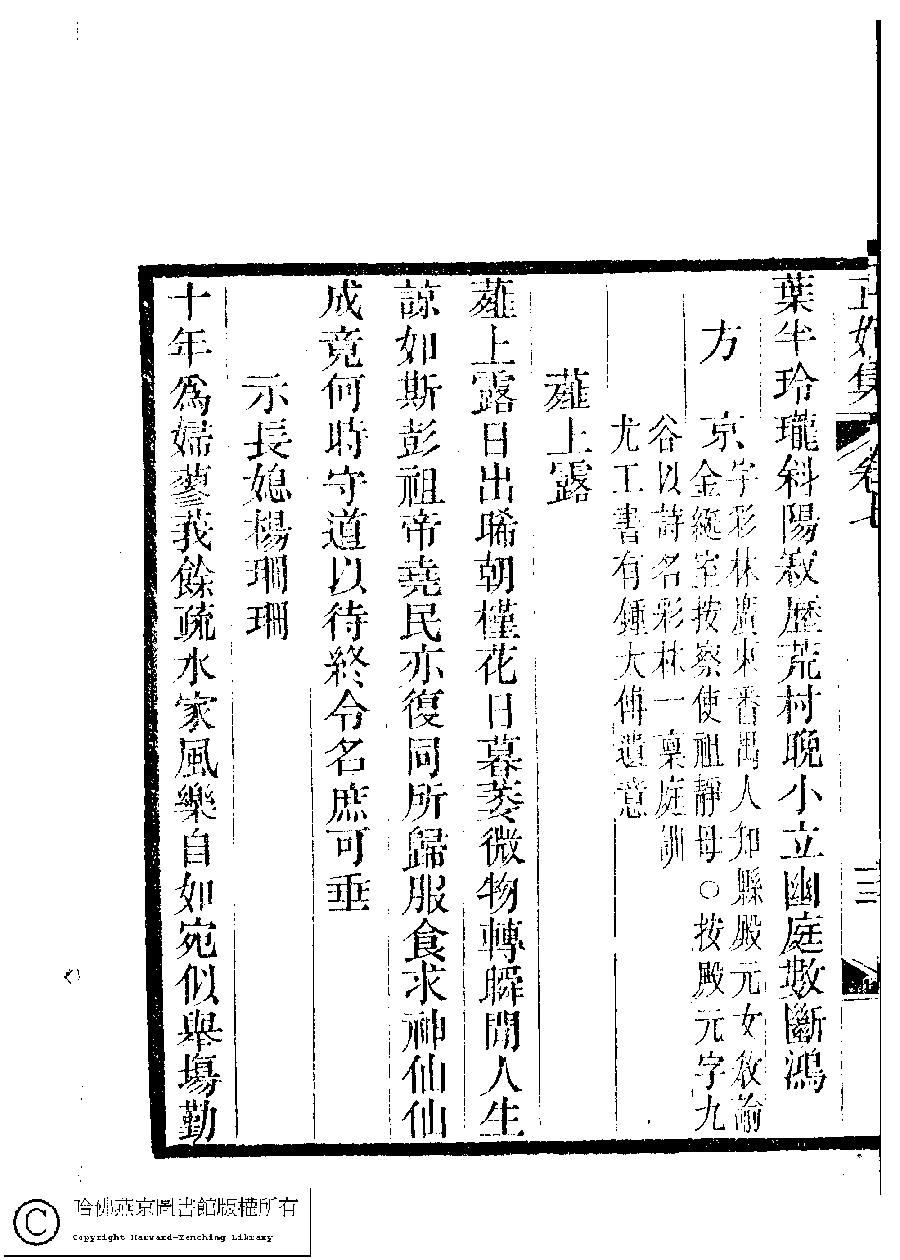 正始集 卷七 三
葉半玲瓏斜陽寂歷荒村晚小立幽庭數斷鴻
方京
字彩林廣東番禺人知縣殿元女敎諭
金綖室按察使祖靜母○按殿元字九
谷以詩名彩林一稟庭訓
尤工書有鍾太傅遺意
薤上露
薤上露日出晞朝槿花日暮萎微物轉瞬閒人生
諒如斯彭祖帝堯民亦復同所歸服食求神仙仙
成竟何時守道以待終令名庶可垂
示長媳楊珊珊
十年爲婦蓼莪餘疏水家風樂自如宛似舉塲勤
哈佛燕京圖書館版權所有
Copyright Harvard-Yenching Library